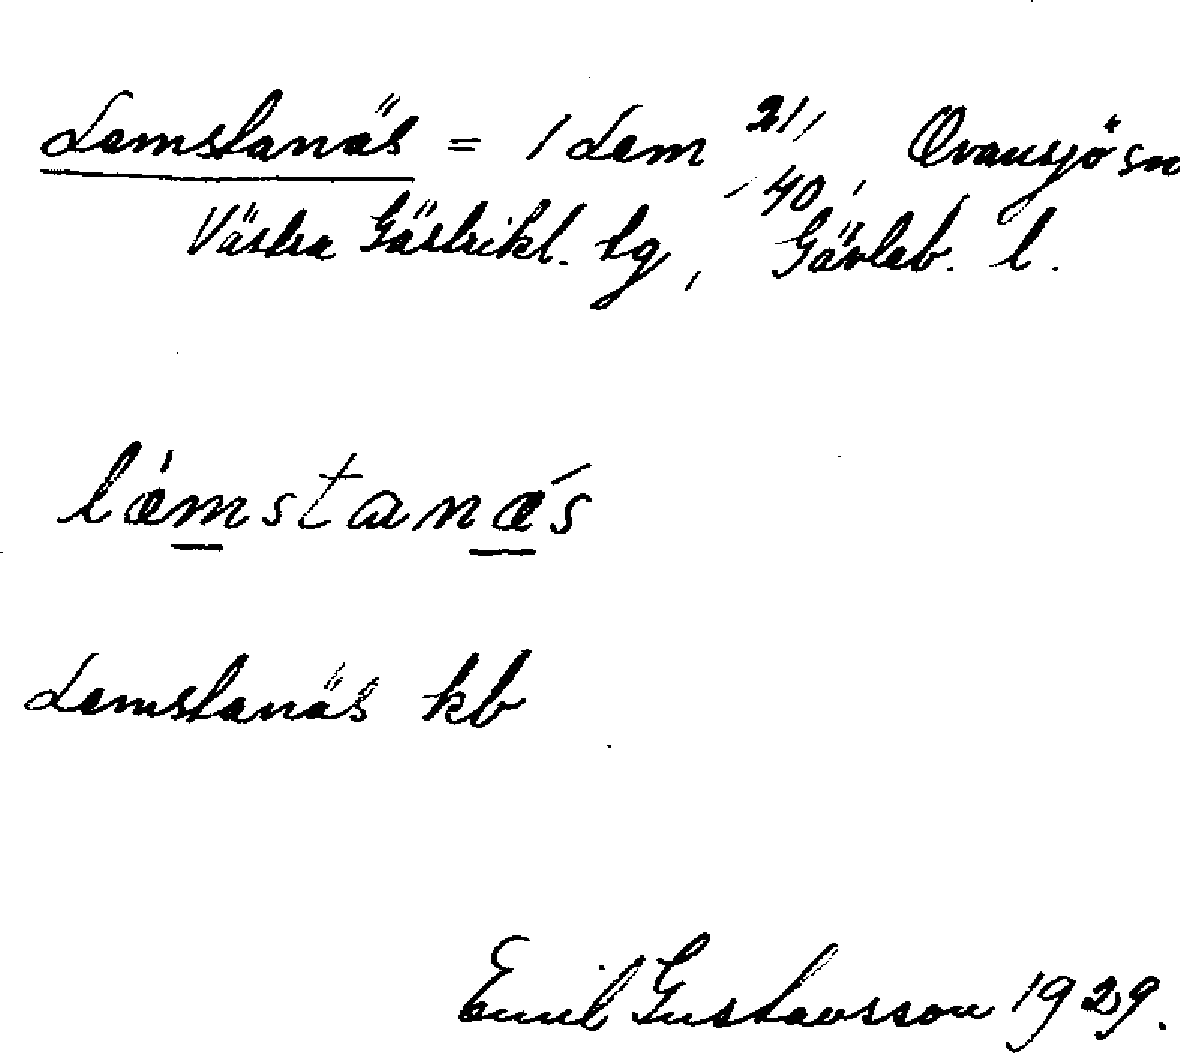 Lemstanäs = 1 Lem 21/40, Ovansjö sn
Västra Gästrikl. tg, Gävleb. l.
læ̀mstanæ´s
Lemstanäs kb
Emil Gustavsson 1929.